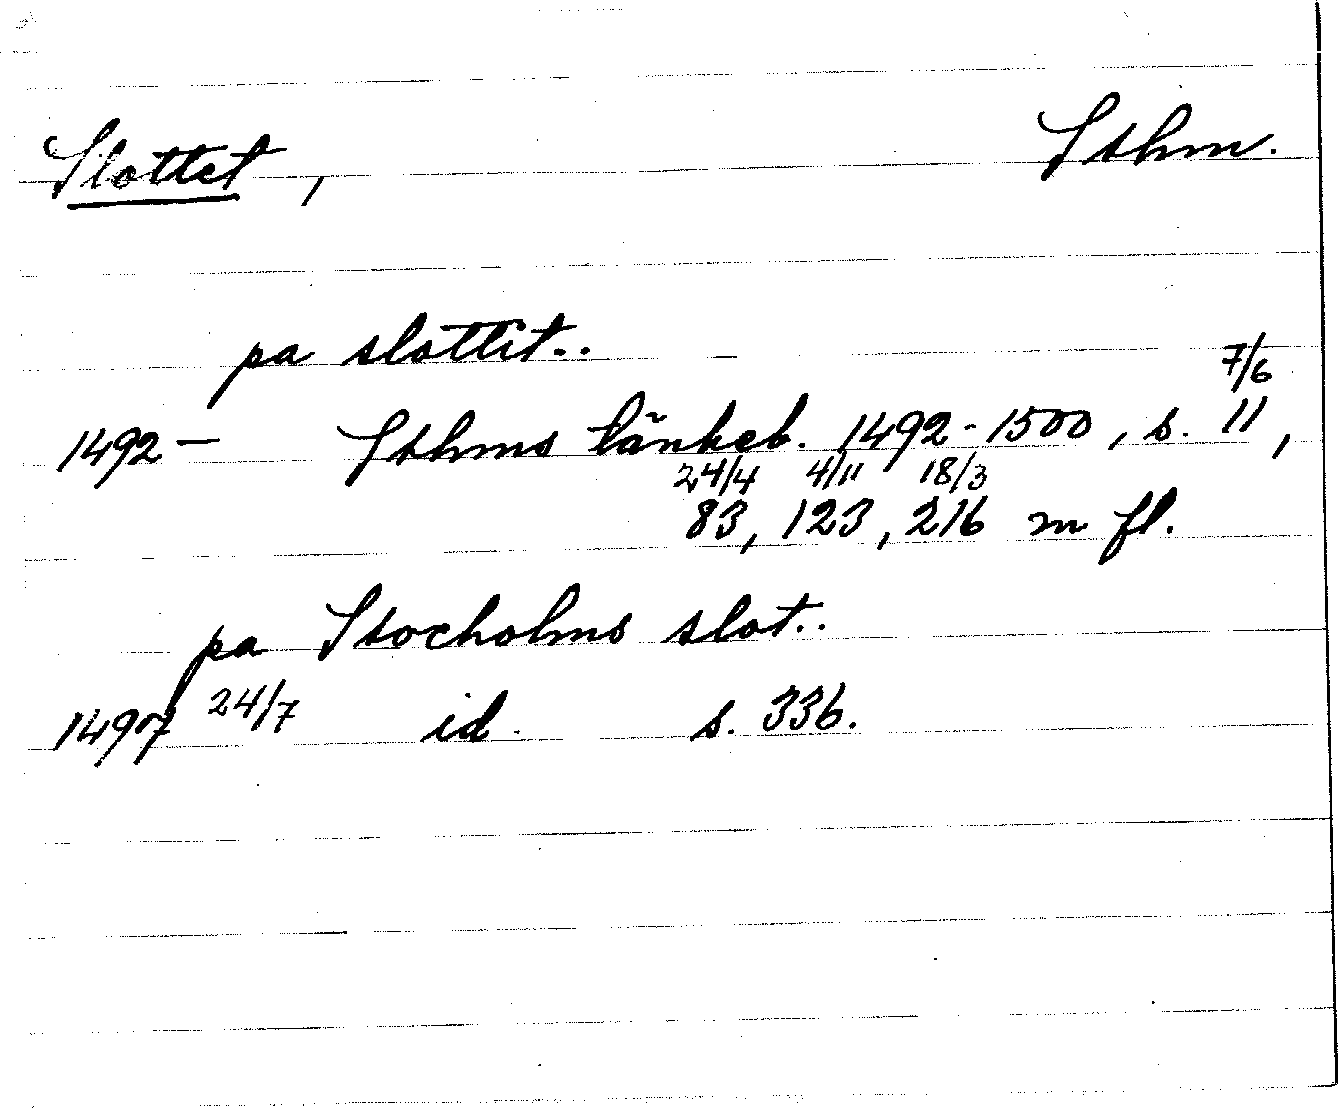 Slottet, Sthm.
pa slottit..
7/6
1492- Sthms tänkeb. 1492-1500, s. 11,
24/4 4/11 18/3
83, 123, 216 m fl.
pa Stocholms slot..
1497 24/7 id. s. 336.